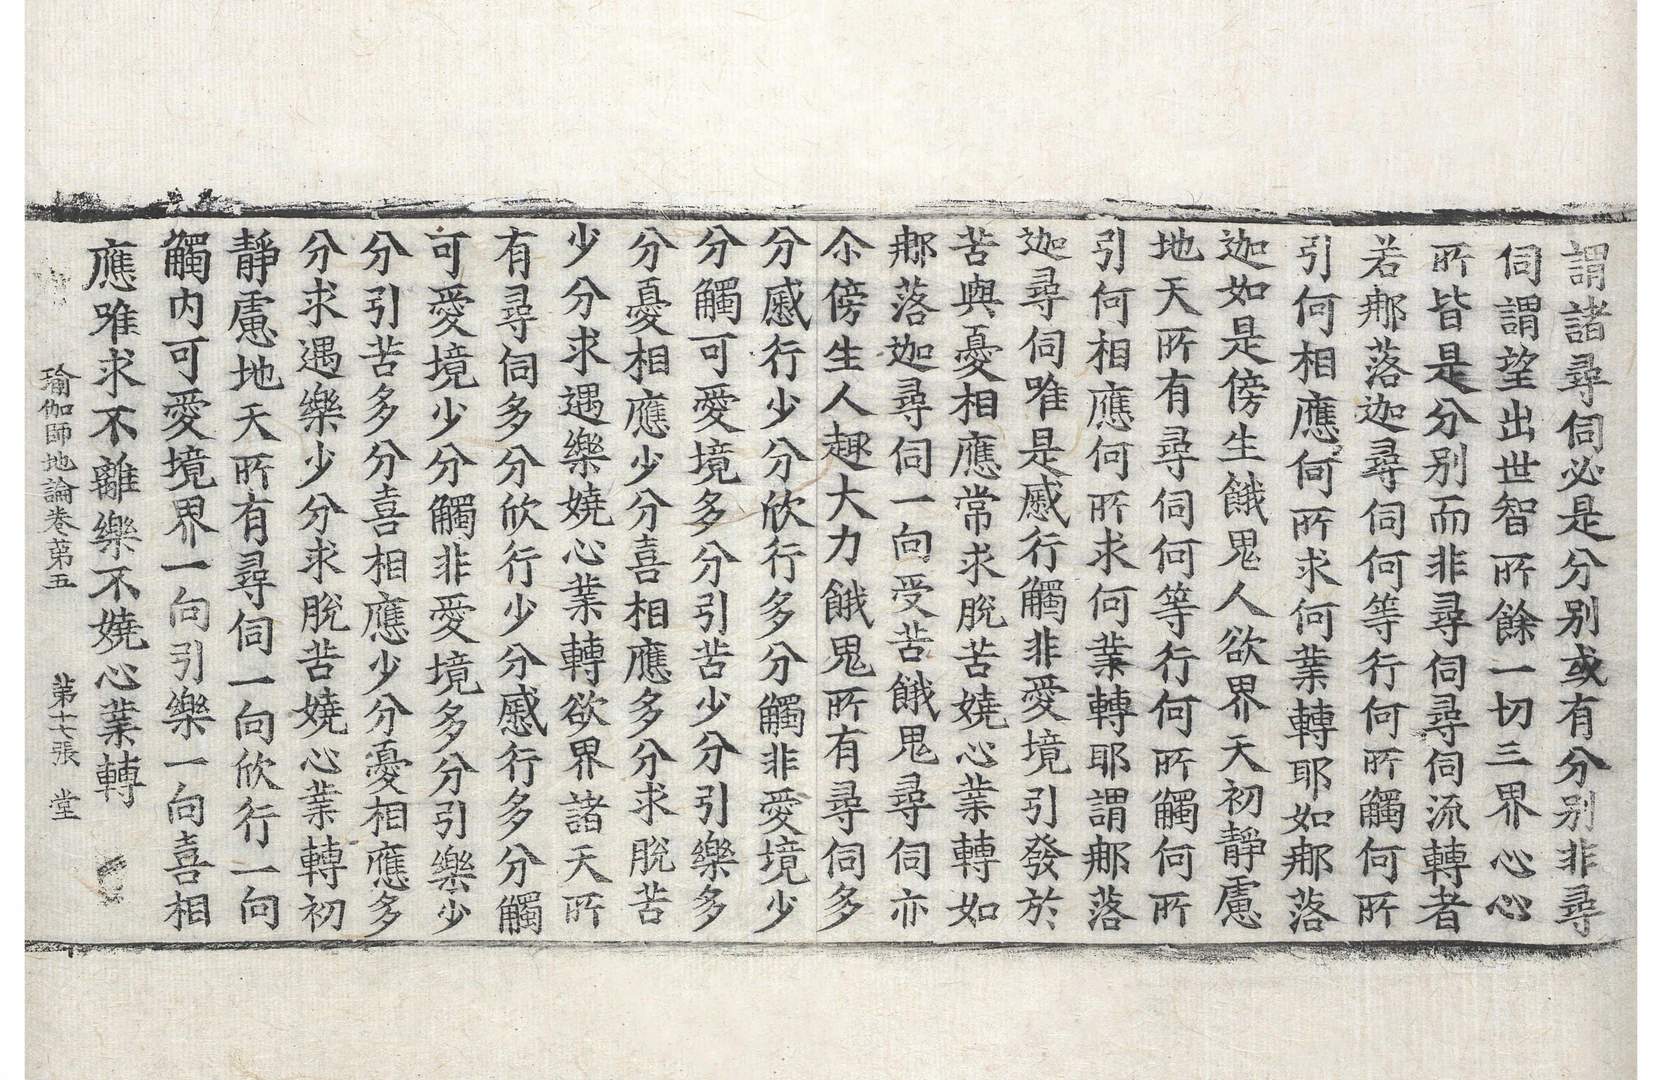 謂諸尋伺必是分別或有分別非尋
伺謂望出世智所餘一切三界心心
所皆是分別而非尋伺尋伺流轉者
若那落迦尋伺何等行何所觸何所
引何相應何所求何業轉耶如那落
迦如是傍生餓鬼人欲界天初靜慮
地天所有尋伺何等行何所觸何所
引何相應何所求何業轉耶謂那落
迦尋伺唯是慼行觸非愛境引發於
苦與憂相應常求脫苦嬈心業轉如
那落迦尋伺一向受苦餓鬼尋伺亦
尒傍生人趣大力餓鬼所有尋伺多
分慼行少分欣行多分觸非愛境少
分觸可愛境多分引苦少分引樂多
分憂相應少分喜相應多分求脫苦
少分求遇樂嬈心業轉欲界諸天所
有尋伺多分欣行少分慼行多分觸
可愛境少分觸非愛境多分引樂少
分引苦多分喜相應少分憂相應多
分求遇樂少分求脫苦嬈心業轉初
靜慮地天所有尋伺一向欣行一向
觸內可愛境界一向引樂一向喜相
應唯求不離樂不嬈心業轉
瑜伽師地論卷第五 第十七張 堂